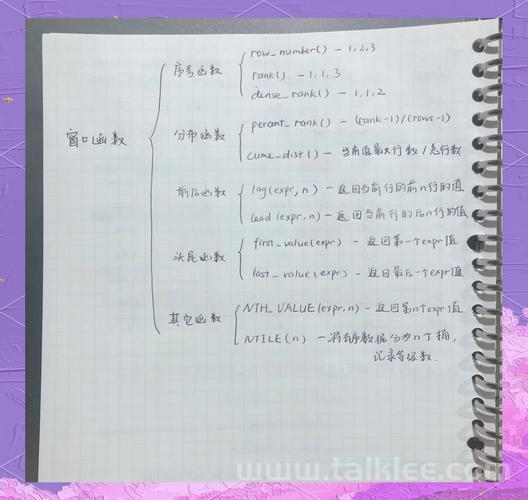 窗口函数
序号函数
row_number() - 1,2,3
rank() - 1,1,3
dense_rank() - 1,1,2
分布函数
percent_rank() - (rank-1)/(rows-1)
cume_dist() - 当前值最大行数/总行数
前后函数
lag(expr,n) - 返回当前行的前n行的值
lead(expr,n) - 返回当前行的后n行的值
头尾函数
first_value(expr) - 返回第一个expr值
last_value(expr) - 返回最后一个expr值
其它函数
NTH_VALUE(expr,n) - 返回第n个expr值
NTILE(n) - 将有序数据分为n个桶,
记录等级数.
www.talklee.com